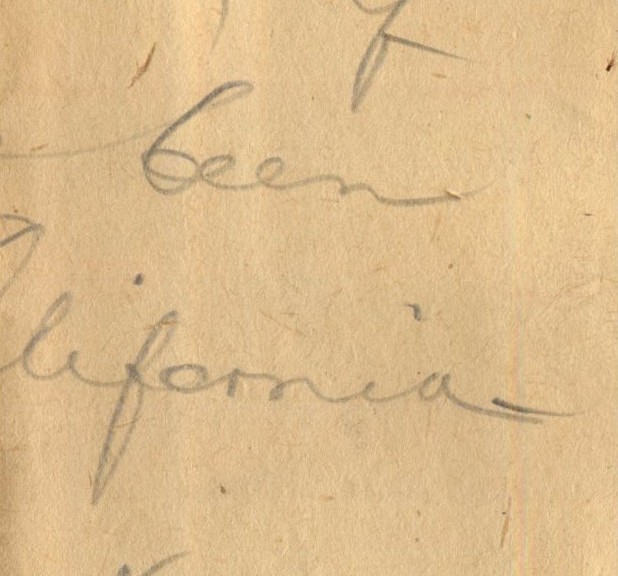 been
lifornia